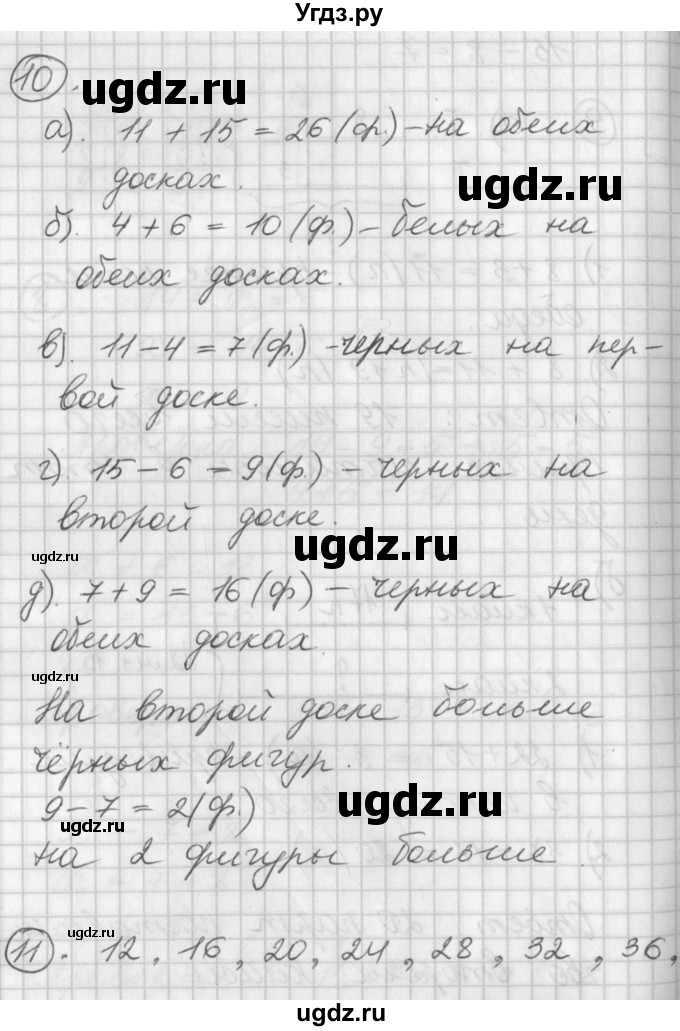 Угдз.ру
10.
ugdz.ru
а). 11 + 15 = 26 (ф.) – на обеих
досках.
ugdz.ru
б). 4 + 6 = 10 (ф.) – белых на
обеих досках.
в). 11 – 4 = 7 (ф.) – черных на пер-
вой доске.
г). 15 – 6 = 9 (ф.) – черных на
второй доске.
ugdz.ru
ugdz.ru
д). 7 + 9 = 16 (ф) – черных на
обеих досках.
ugdz.ru
На второй доске больше
чёрных фигур.
9 – 7 = 2 (ф.)
ugdz.ru
ugdz.ru
на 2 фигуры больше.
ugdz.ru
11. 12, 16, 20, 24, 28, 32, 36,
ugdz.ru